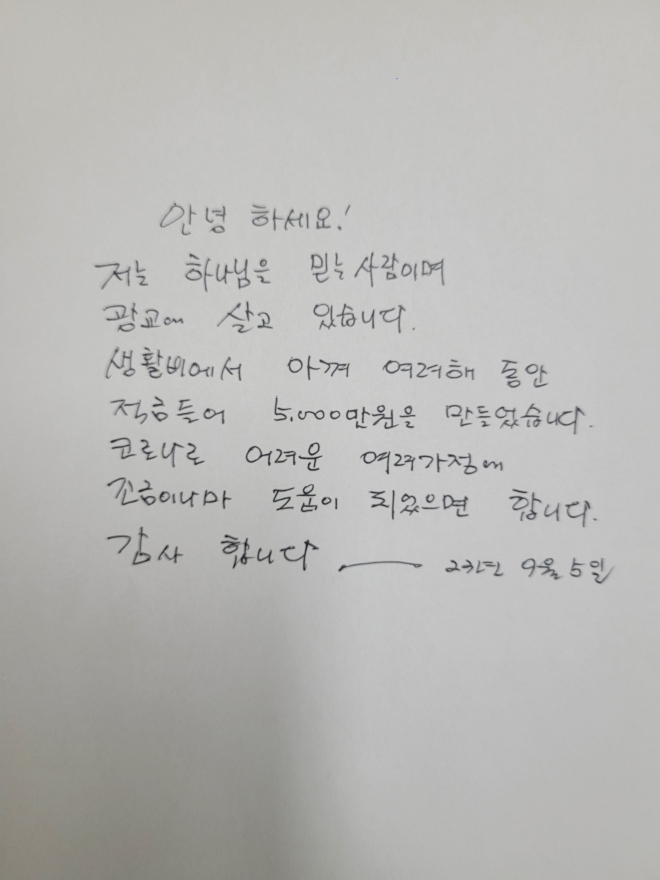 안녕 하세요!
저는 하나님을 믿는 사람이며
광교에 살고 있습니다.
생활비에서 아껴 여려해 동안
적금들어 5.000만원을 만들었습니다.
코로나로 어려운 여려가정에
조금이나마 도움이 되었으면 합니다.
감사 합니다 23년 9월 5일